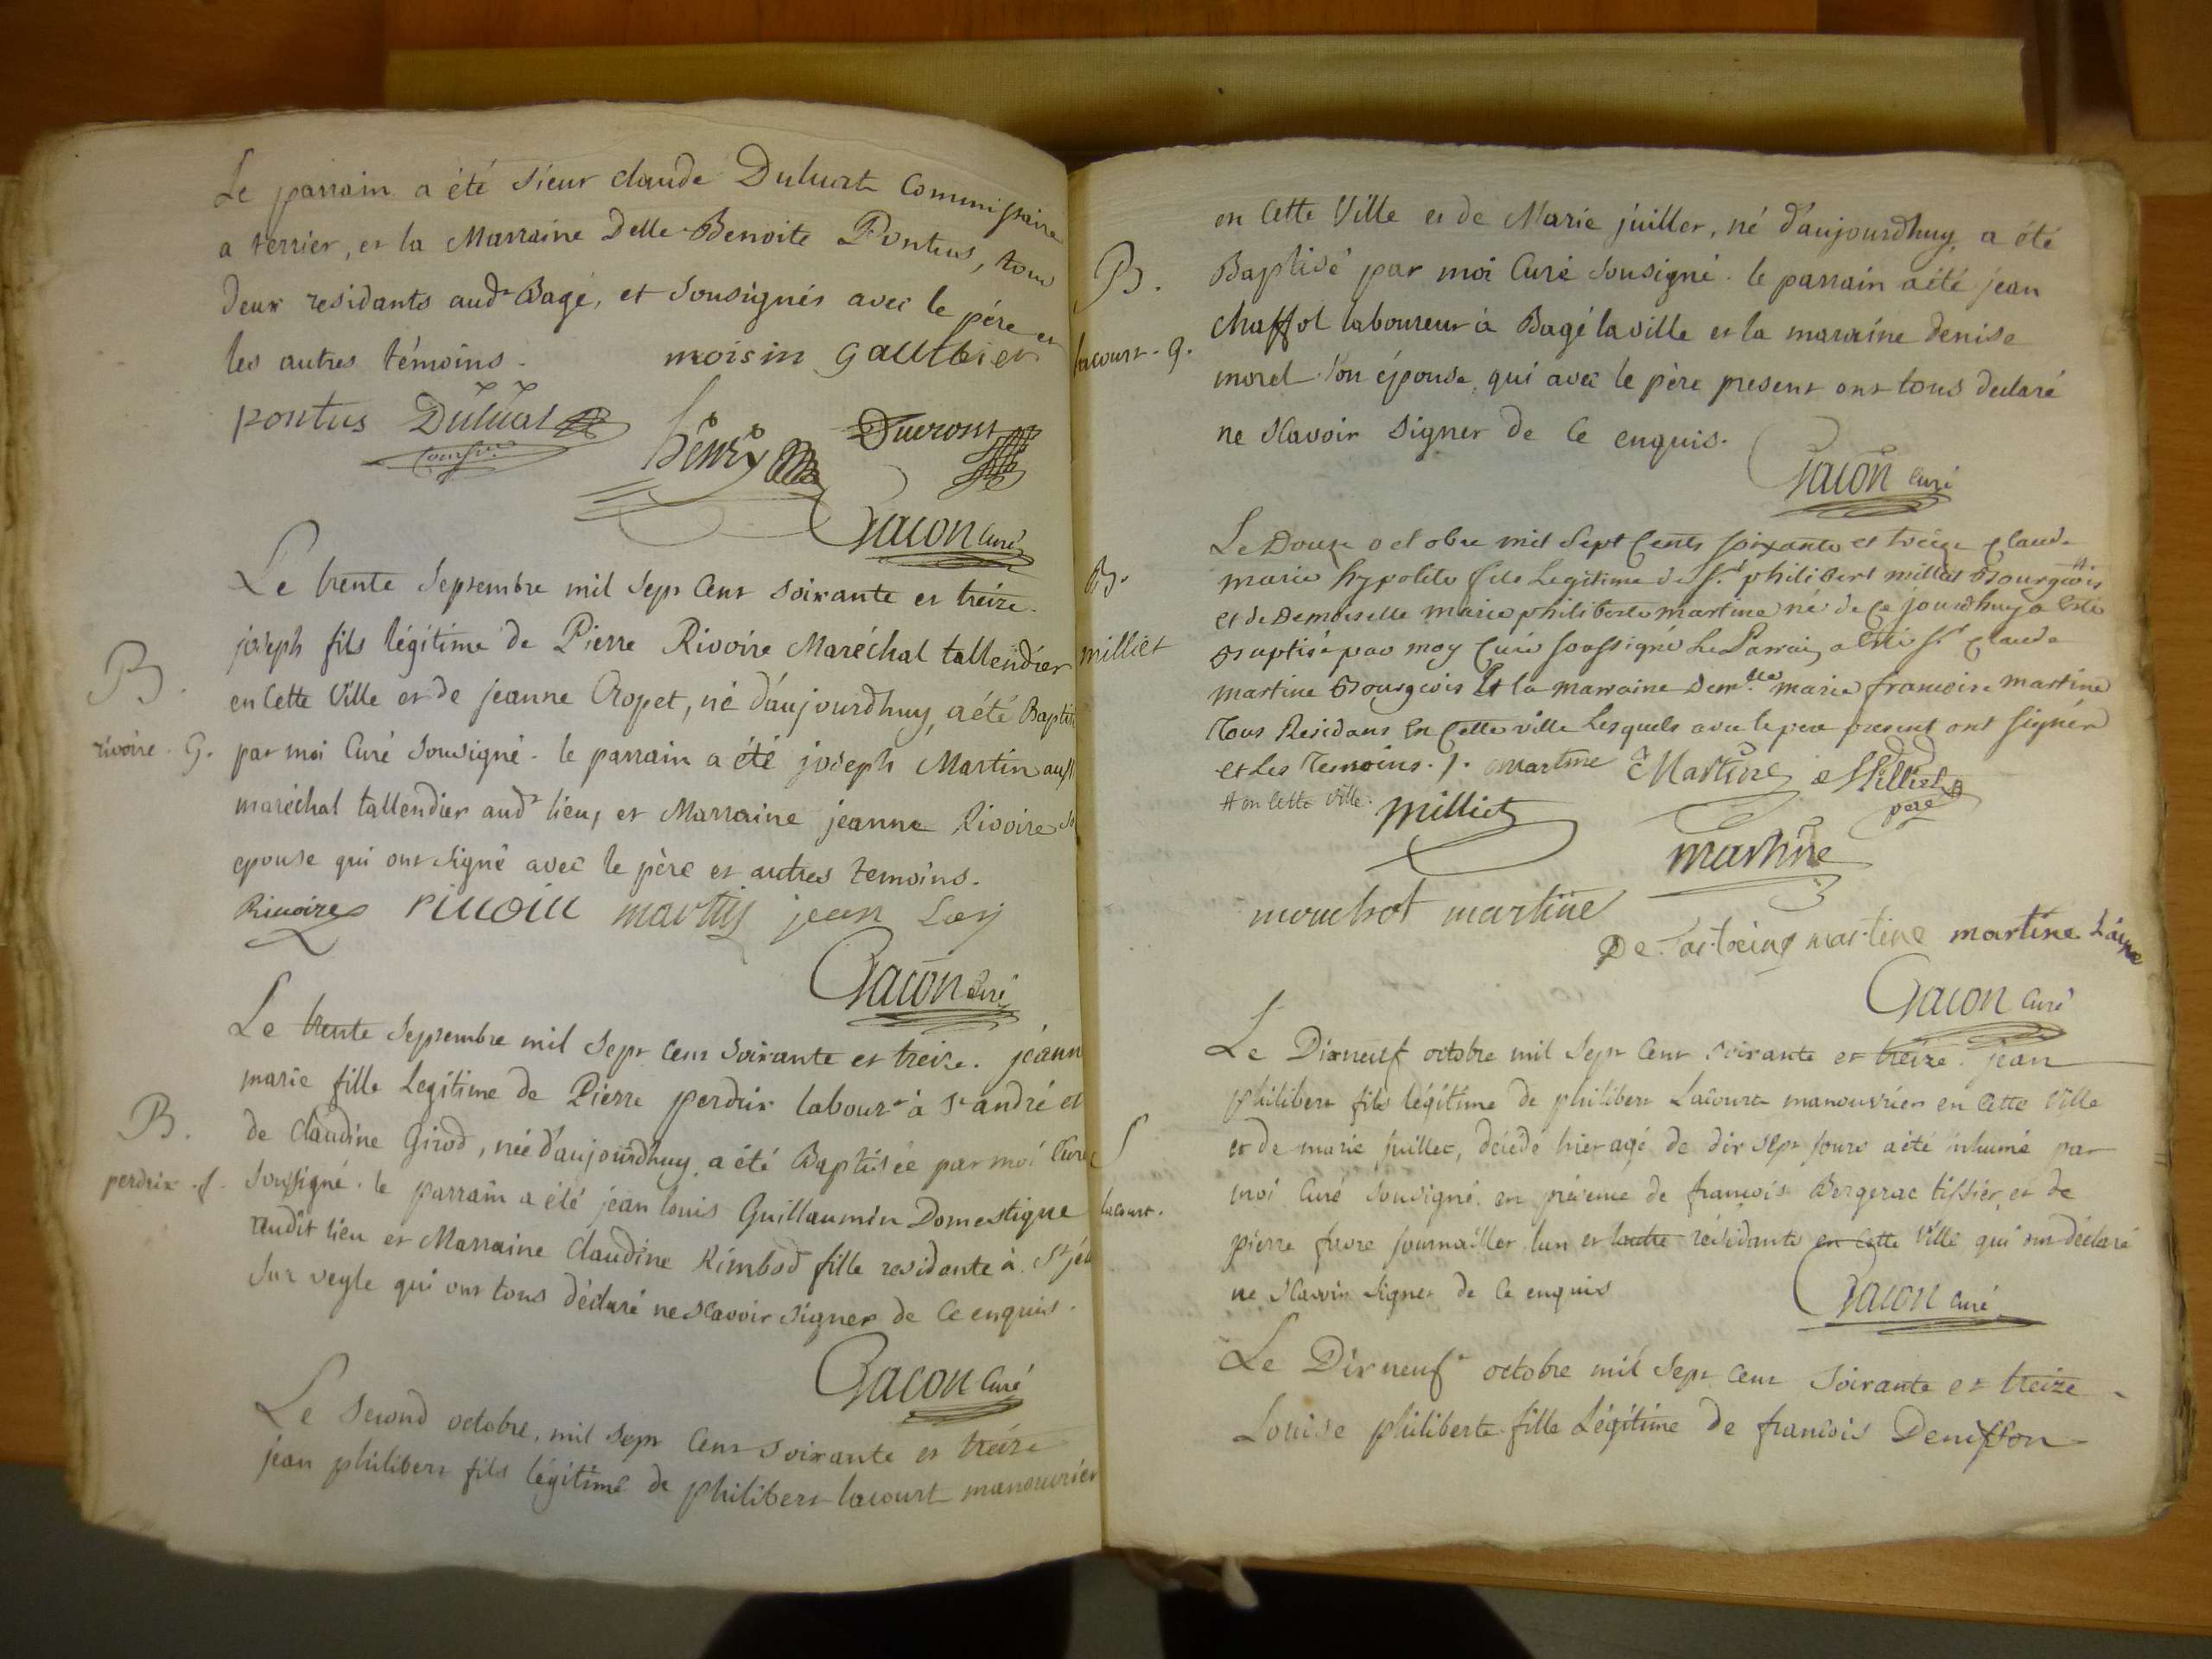 Le parrain a été sieur claude Duluat Commissaire
a terrier, et la Marraine Delle Benoite Pontus, tous
deux residants aud.t Bagé, et sousignés avec le pére et
les autres témoins. moisin gaulthier
pontus Duluat henry Ducrost
Gacon Curé
Le trente septembre mil sept cent soixante et treize.
B. joseph fils légitime de Pierre Rivoire Maréchal tallendier
en cette Ville et de jeanne Cropet, né d'aujourdhuy, a été Baptisé
rivoire. g. par moi Curé sousigné. le parrain a été joseph Martin aussi
maréchal tallendier aud.t lieu, et Marraine jeanne Rivoire
epouse qui ont signé avec le père et autres temoins.
Rivoire rivoire martin jean
Gacon Curé
Le trente septembre mil sept cent soixante et treize. jeanne
marie fille Legitime de Pierre perdrix labour.r à S.t andré et
B. de Claudine Girod, née d'aujourdhuy, a été Baptisée par moi Curé
perdrix. f. sousigné. le parrain a été jean louis Guillaumin Domestique
audit lieu et Marraine Claudine Rimbod fille residente à S.t jean
sur veyle qui ont tous déclaré ne scavoir signer de ce enquis.
Gacon Curé
Le second octobre, mil sept cent soixante et treize
jean philibert fils légitime de philibert lacourt manouvrier
en cette Ville et de Marie juillet, né d'aujourdhuy, a été
B. Baptisé par moi Curé sousigné. le parrain a été jean
Chaffol laboureur à Bagé la ville et la maraine denise
lacourt. g. morel son épouse, qui avec le père present ont tous declaré
ne scavoir signer de ce enquis.
Gacon Curé
Le Douze octobre mil sept cents soixante et treize Claude
B. marie hypolite fils Legitime de S.r philibert milliet Bourgeois #
et de Demoiselle marie philiberte martine né de ce jourdhuy a été
milliet Baptisé par moy Curé soussigné Le Parrain a été S.r Claude
martine Bourgeois Et la marraine Dem.lle marie francoise martine
Tous Residans en Cette ville Lesquels avec le pere present ont signér
et Les Temoins. /. martine Martine Milliet
# en cette ville. milliet pere
martine
mouchot martine
martine martine L'aine
Gacon Curé
Le Dixneuf octobre mil sept cent soixante et treize. jean
philibert fils légitime de philibert Lacourt manouvrier en cette Ville
S et de marie juillet, décédé hier agé de dix sept jours a été inhumé par
moi Curé sousigné. en présence de francois Bergerac tissier, et de
lacourt. pierre favre journallier lun et lautre résidants en cette Ville qui ont déclaré
ne scavoir signer de ce enquis
Gacon Curé
Le Dixneuf octobre mil sept cent soixante et treize
Louise philiberte fille Légitime de francois Denisson